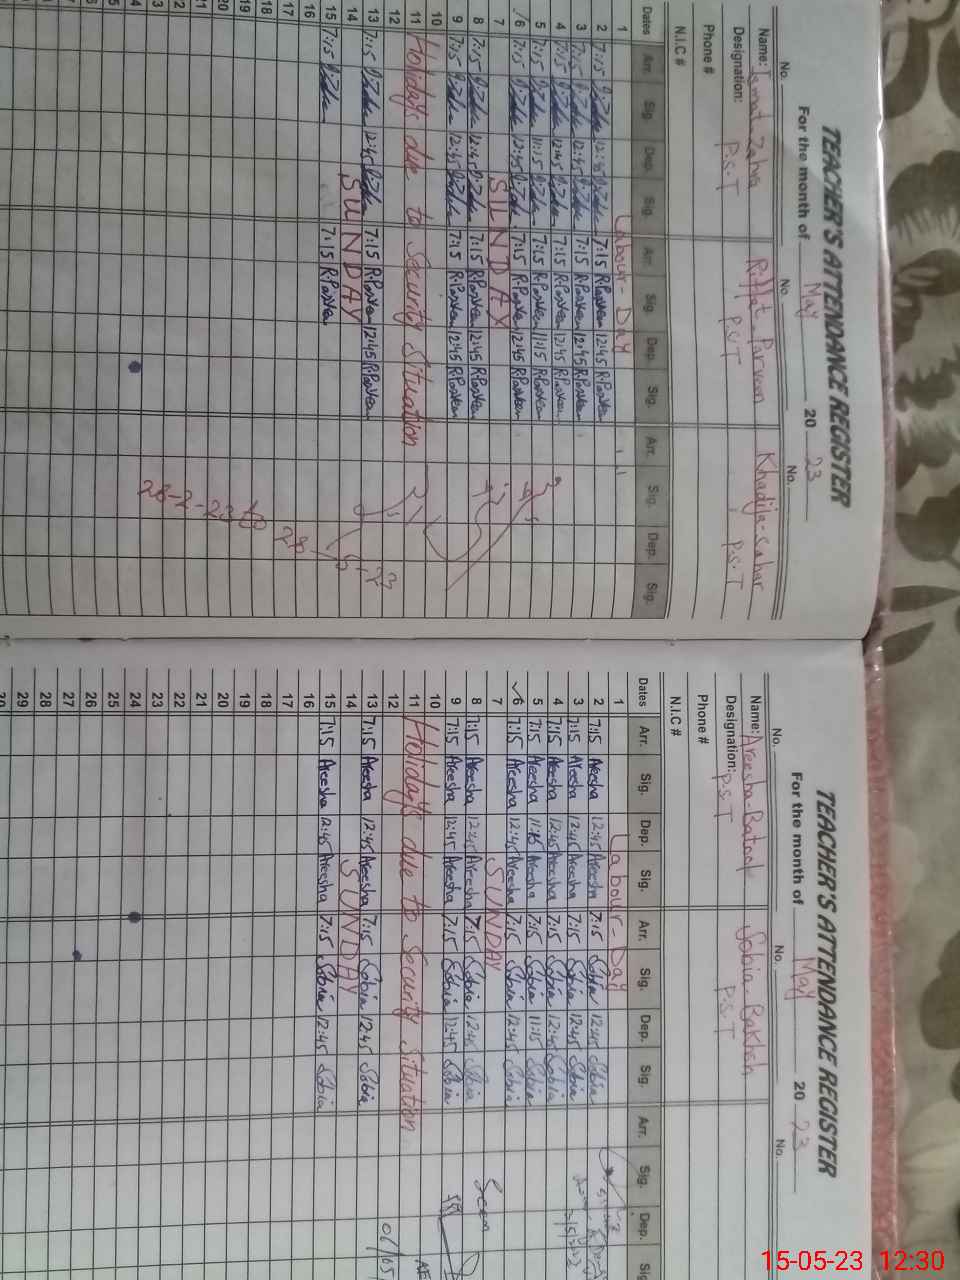 TEACHER'S ATTENDANCE REGISTER
For the month of May 20 23
No. No. No.
Name: Ismat-Zahra Riffat-Parveen Khadija-Sahar
Designation: P.S.T P.S.T P.S.T
Phone #
N.I.C #
Dates Arr. Sig. Dep. Sig. Arr. Sig. Dep. Sig. Arr. Sig. Dep. Sig.
1 Labour-Day
2 7:15 12:45 7:15 R.Parveen 12:45 R.Parveen
3 7:15 12:45 7:15 R.Parveen 12:45 R.Parveen
4 7:15 12:45 7:15 R.Parveen 12:45 R.Parveen
5 7:15 11:15 7:15 R.Parveen 11:15 R.Parveen
6 7:15 12:45 7:15 R.Parveen 12:45 R.Parveen
7 SUNDAY
8 7:15 12:45 7:15 R.Parveen 12:45 R.Parveen
9 7:15 12:45 7:15 R.Parveen 12:45 R.Parveen
10
11 Holidays due to Security Situation
12
13 7:15 12:45 7:15 R.Parveen 12:45 R.Parveen
14 SUNDAY
15 7:15 7:15 R.Parveen
16
17
18
19
20
21
22
23
24
TEACHER'S ATTENDANCE REGISTER
For the month of May 20 23
No. No. No.
Name: Areesha-Batool Sobia-Bakhsh
Designation: P.S.T P.S.T
Phone #
N.I.C #
Dates Arr. Sig. Dep. Sig. Arr. Sig. Dep. Sig. Arr. Sig. Dep. Sig.
1 Labour-Day
2 7:15 Areesha 12:45 Areesha 7:15 Sobia 12:45 Sobia
3 7:15 Areesha 12:45 Areesha 7:15 Sobia 12:45 Sobia
4 7:15 Areesha 12:45 Areesha 7:15 Sobia 12:45 Sobia
5 7:15 Areesha 11:15 Areesha 7:15 Sobia 11:15 Sobia
6 7:15 Areesha 12:45 Areesha 7:15 Sobia 12:45 Sobia
7 SUNDAY
8 7:15 Areesha 12:45 Areesha 7:15 Sobia 12:45 Sobia
9 7:15 Areesha 12:45 Areesha 7:15 Sobia 12:45 Sobia
10
11 Holidays due to Security Situation
12
13 7:15 Areesha 12:45 Areesha 7:15 Sobia 12:45 Sobia
14 SUNDAY
15 7:15 Areesha 12:45 Areesha 7:15 Sobia 12:45 Sobia
16
17
18
19
20
21
22
23
24
25
26
27
28
29
Seen
15-05-23 12:30